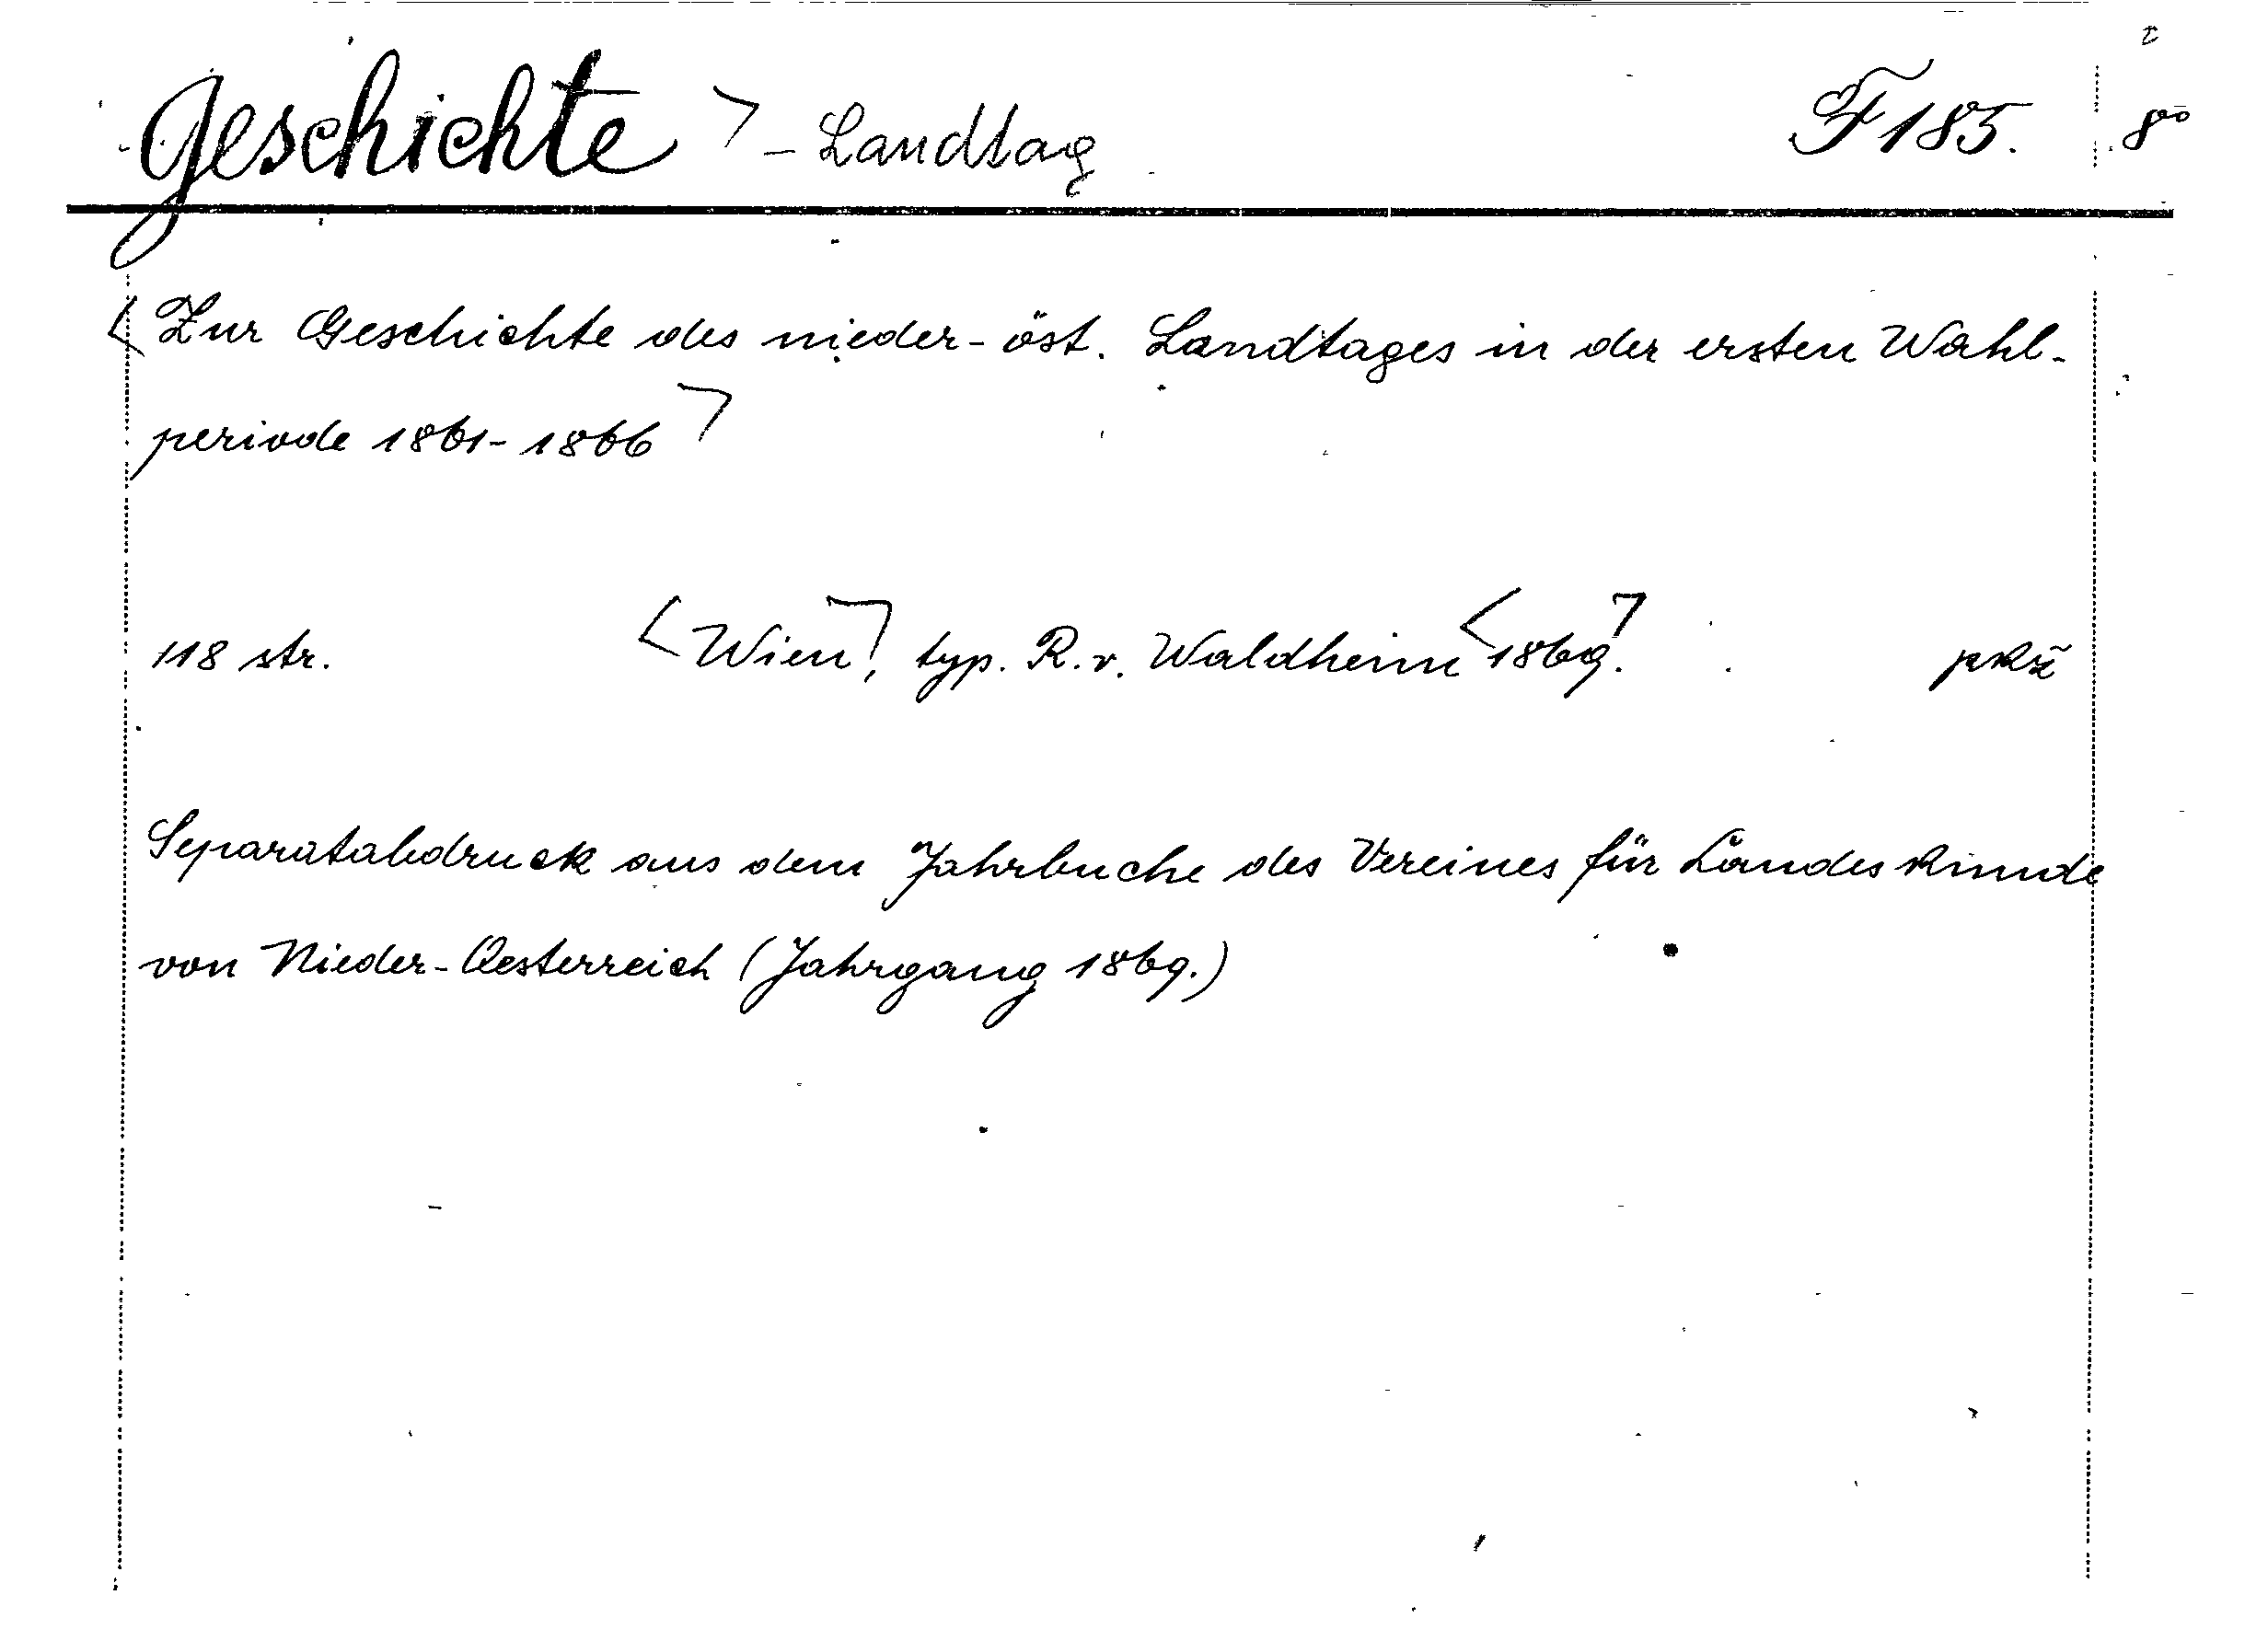 Geschichte ⌝ - Landtag F 185. 8°
< Zur Geschichte des nieder-öst. Landtages in der ersten Wahl-
periode 1861-1866 ⌝
118 str. < Wien ⌝, typ. R. v. Waldheim < 1869 ⌝. pkž
Separatabdruck aus dem Jahrbuche des Vereines für Landeskunde
von Nieder-Oesterreich (Jahrgang 1869.)